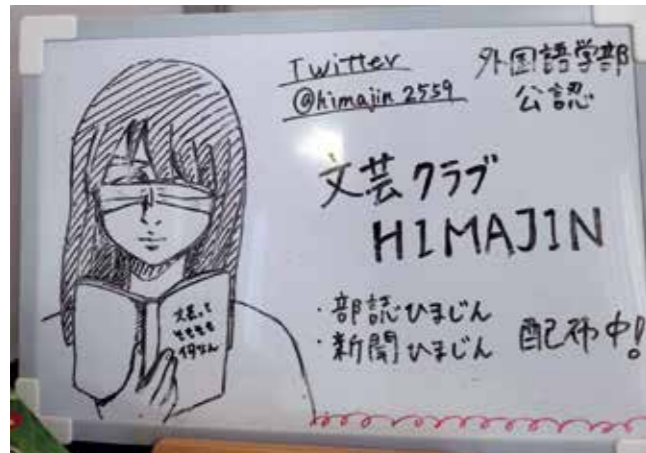 Twitter
@himajin2559
外国語学部
公認
文芸クラブ
HIMAJIN
・部誌ひまじん
・新聞ひまじん
配布中!
文芸って
そもそも
何なん